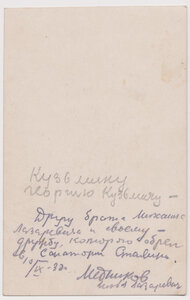 Кузьмину
Георгию Кузьмичу –
Другу брата Михаила
Лазаревича и своему –
другу, которого обрел
в санатории
Медников
Лазаревич